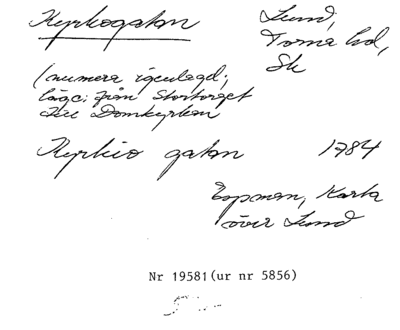 Kyrkogatan
Lund,
Torna hd,
Sk
(numera igenlagd;
läge: från Stortorget
till Domkyrkan
Kyrkio gatan 1784
Espman, Karta
över Lund
Nr 19581(ur nr 5856)